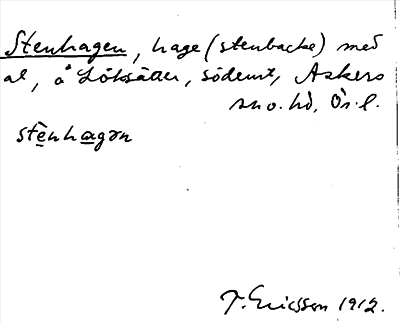 Stenhagen, hage (stenbacke) med
al, å Löksätter, söderut, Askers
sn o. hd, Ör. l.
stènhagən
T. Ericsson 1912.